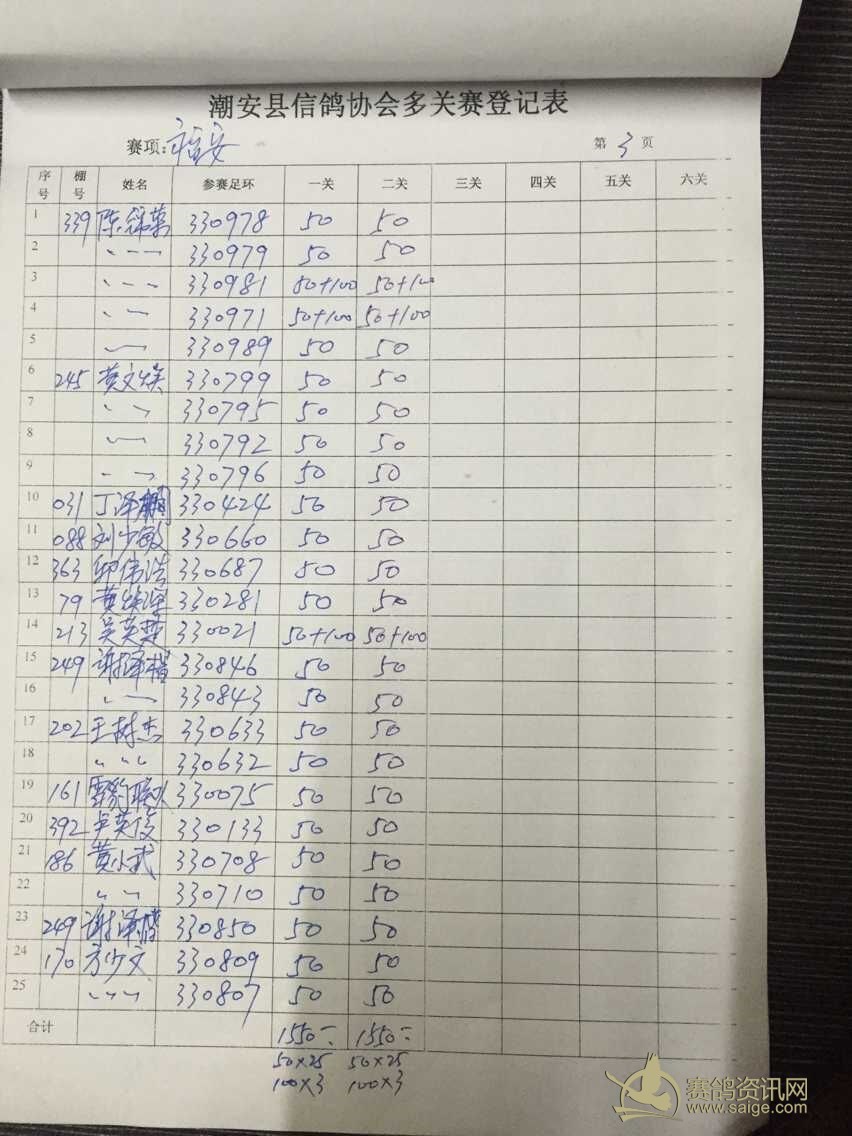 潮安县信鸽协会多关赛登记表
赛项: 福安 第 3 页
序号 棚号 姓名 参赛足环 一关 二关 三关 四关 五关 六关
1 339 陈 330978 50 50
2 330979 50 50
3 330981 50+100 50+100
4 330971 50+100 50+100
5 330989 50 50
6 245 黄文焕 330799 50 50
7 330795 50 50
8 330792 50 50
9 330796 50 50
10 031 丁泽鹏 330424 50 50
11 088 刘少敏 330660 50 50
12 363 伟浩 330687 50 50
13 79 黄 330281 50 50
14 213 吴英楚 330021 50+100 50+100
15 249 谢泽楷 330846 50 50
16 330843 50 50
17 202 王树杰 330633 50 50
18 〃 〃 〃 330632 50 50
19 161 雪豹联队 330075 50 50
20 392 英俊 330133 50 50
21 186 黄小武 330708 50 50
22 〃 〃 330710 50 50
23 249 谢泽楷 330850 50 50
24 170 方少文 330809 50 50
25 330807 50 50
合计 1550- 1550-
50×25 50×25
100×3 100×3
赛鸽资讯网
www.saige.com